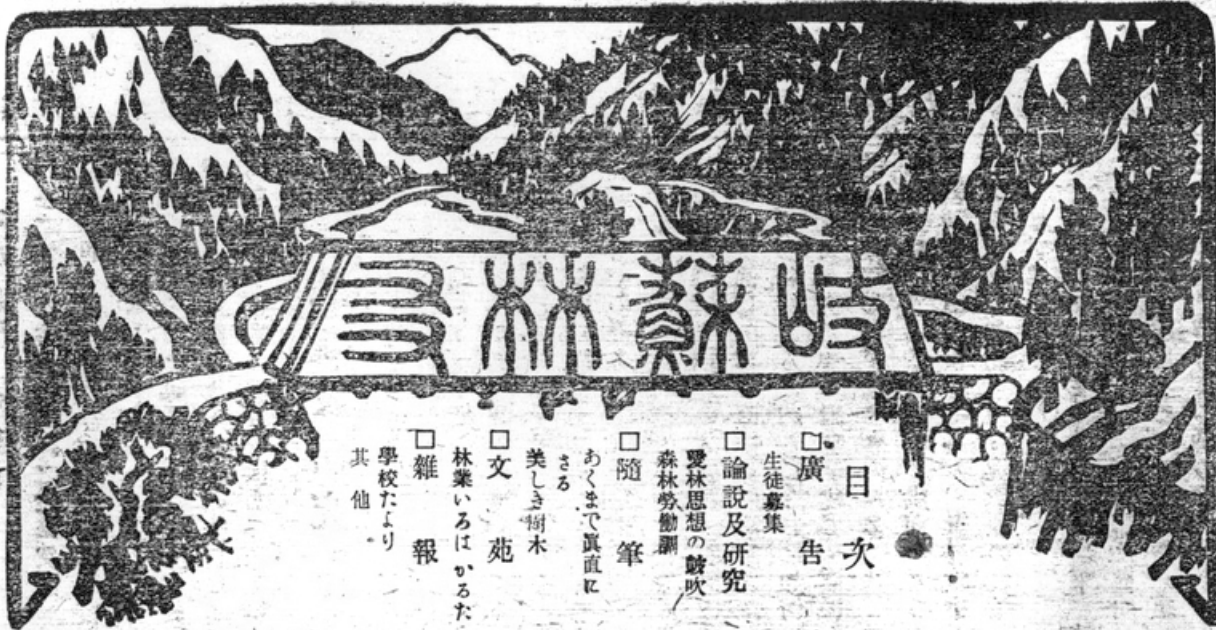 岐蘇林友
目次
□廣告
生徒募集
□論説及研究
愛林思想の皷吹
森林勞働訓
□隨筆
あくまで眞直に
さる
美しき樹木
□文苑
林業いろはかるた
□雜報
學校たより
其他